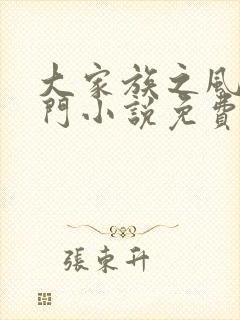 大家族之風
門小說免費
張東升